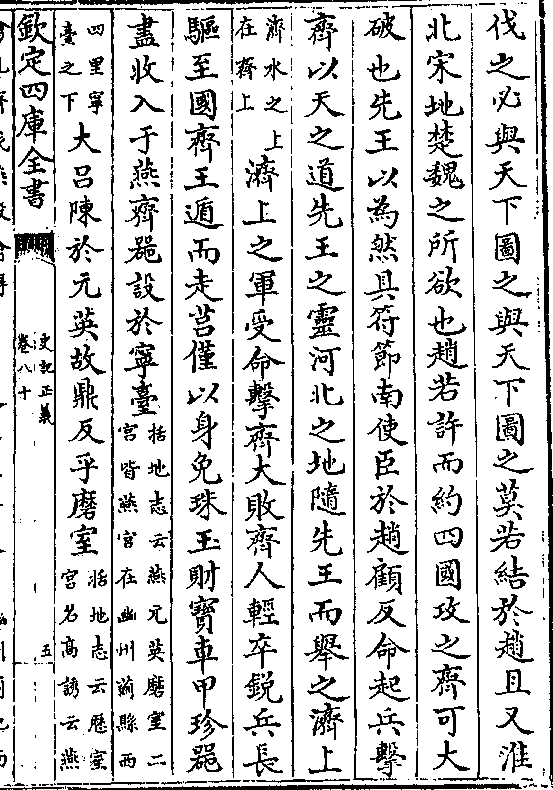 伐之必與天下圖之與天下圖之莫若結於趙且又淮
北宋地楚魏之所欲也趙若許而約四國攻之齊可大
破也先王以為然具符節南使臣於趙顧反命起兵擊
齊以天之道先王之靈河北之地隨先王而舉之濟上
濟水之上
在齊上
濟上之軍受命擊齊大敗齊人輕卒銳兵長
驅至國齊王遁而走莒僅以身免珠玉財寶車甲珍器
盡收入于燕齊器設於寧臺
括地志云燕元英磨室二
宮皆燕宮在幽州薊縣西
四里寧
臺之下
大呂陳於元英故鼎反乎磨室
括地志云歷室
宮名高誘云燕
欽定四庫全書
史記正義
卷八十
五